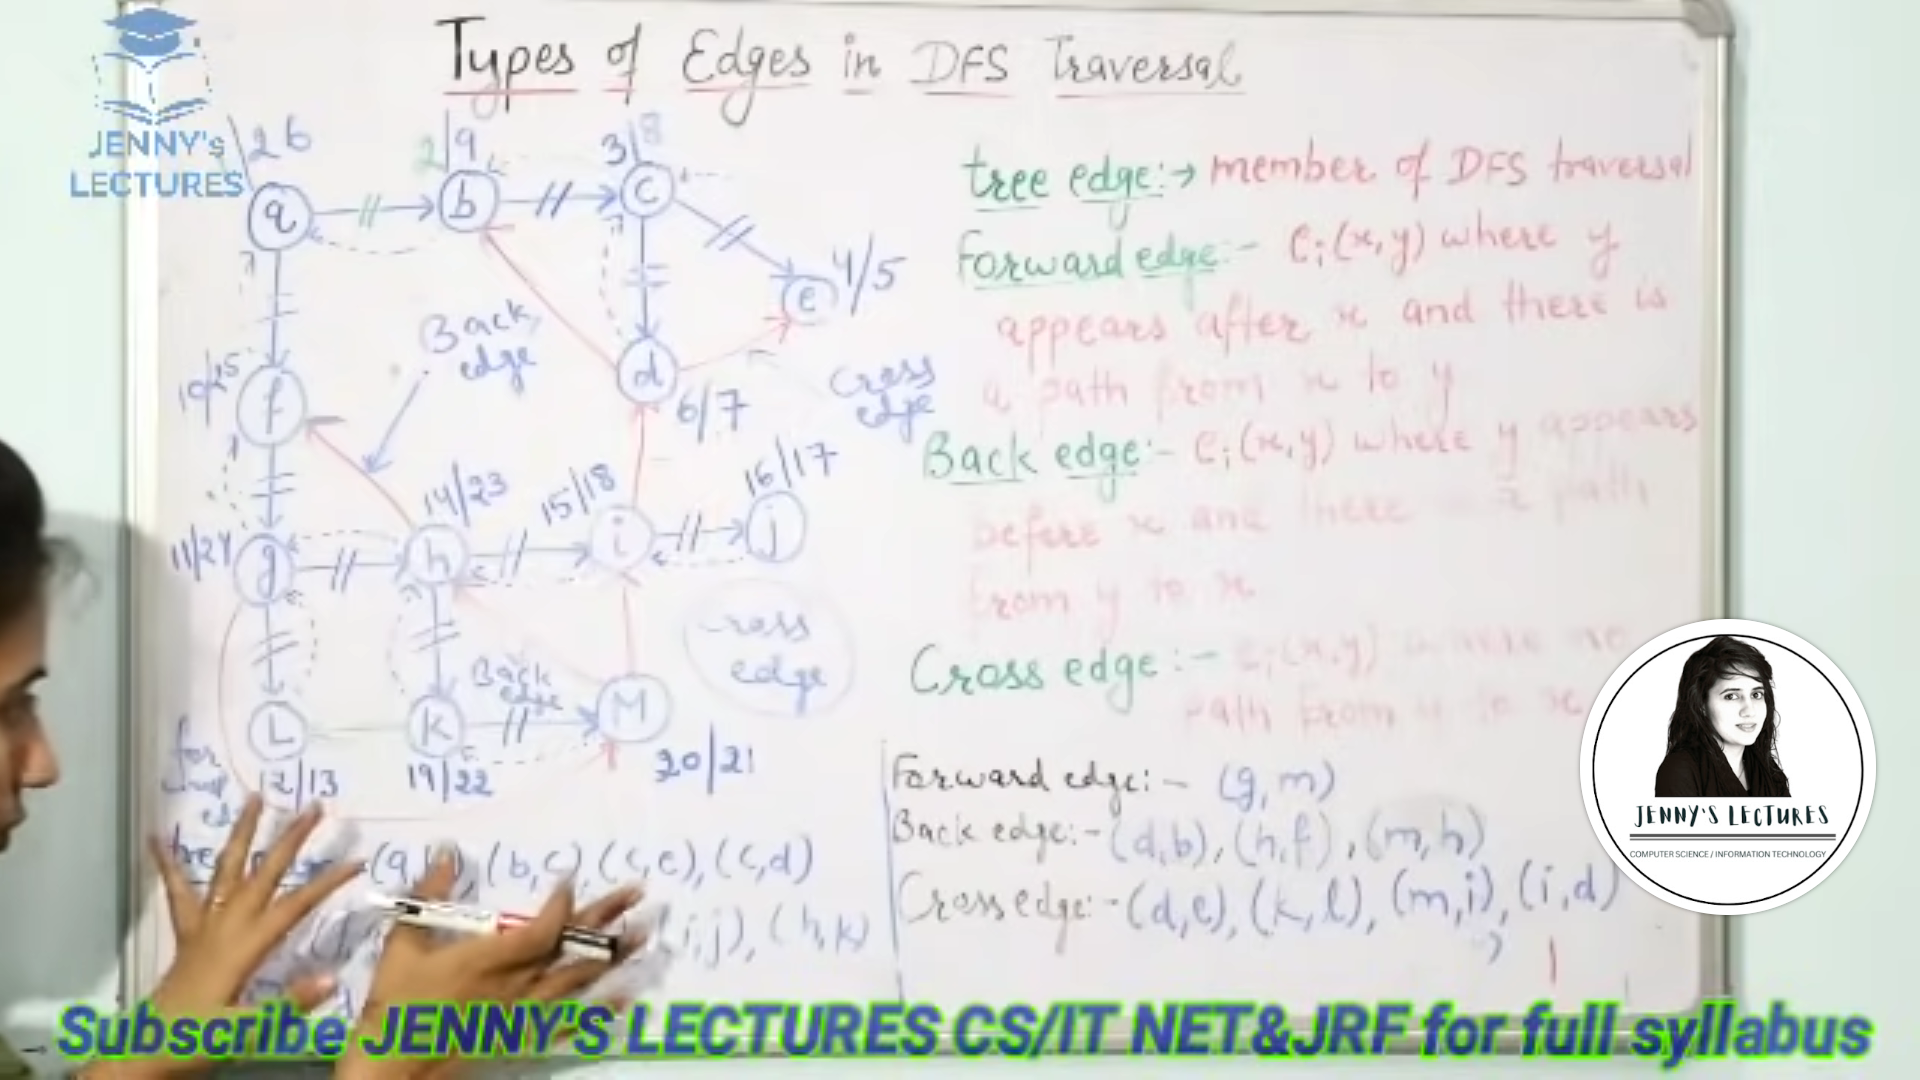 JENNY's
LECTURES
Types of Edges in DFS Traversal
26
2/9
3/8
a
b
c
4/5
e
Back
edge
d
6/7
Cross
edge
f
14/23
15/18
16/17
g
h
i
j
Cross
edge
Back
edge
L
k
M
12/13
19/22
20/21
(b,c), (c,e), (c,d)
(i,j), (h,k)
tree edge:→ member of DFS traversal
Forward edge:- ei(x,y) where y
appears after x and there is
a path from x to y
Back edge:- ei(x,y) where y appears
before x and there path
from y to x
Cross edge:- ei(x,y) where no
path from y to x
Forward edge:- (g,m)
Back edge:- (d,b), (h,f), (m,h)
Cross edge:- (d,e), (k,l), (m,i), (i,d)
JENNY'S LECTURES
COMPUTER SCIENCE / INFORMATION TECHNOLOGY
Subscribe JENNY'S LECTURES CS/IT NET&JRF for full syllabus